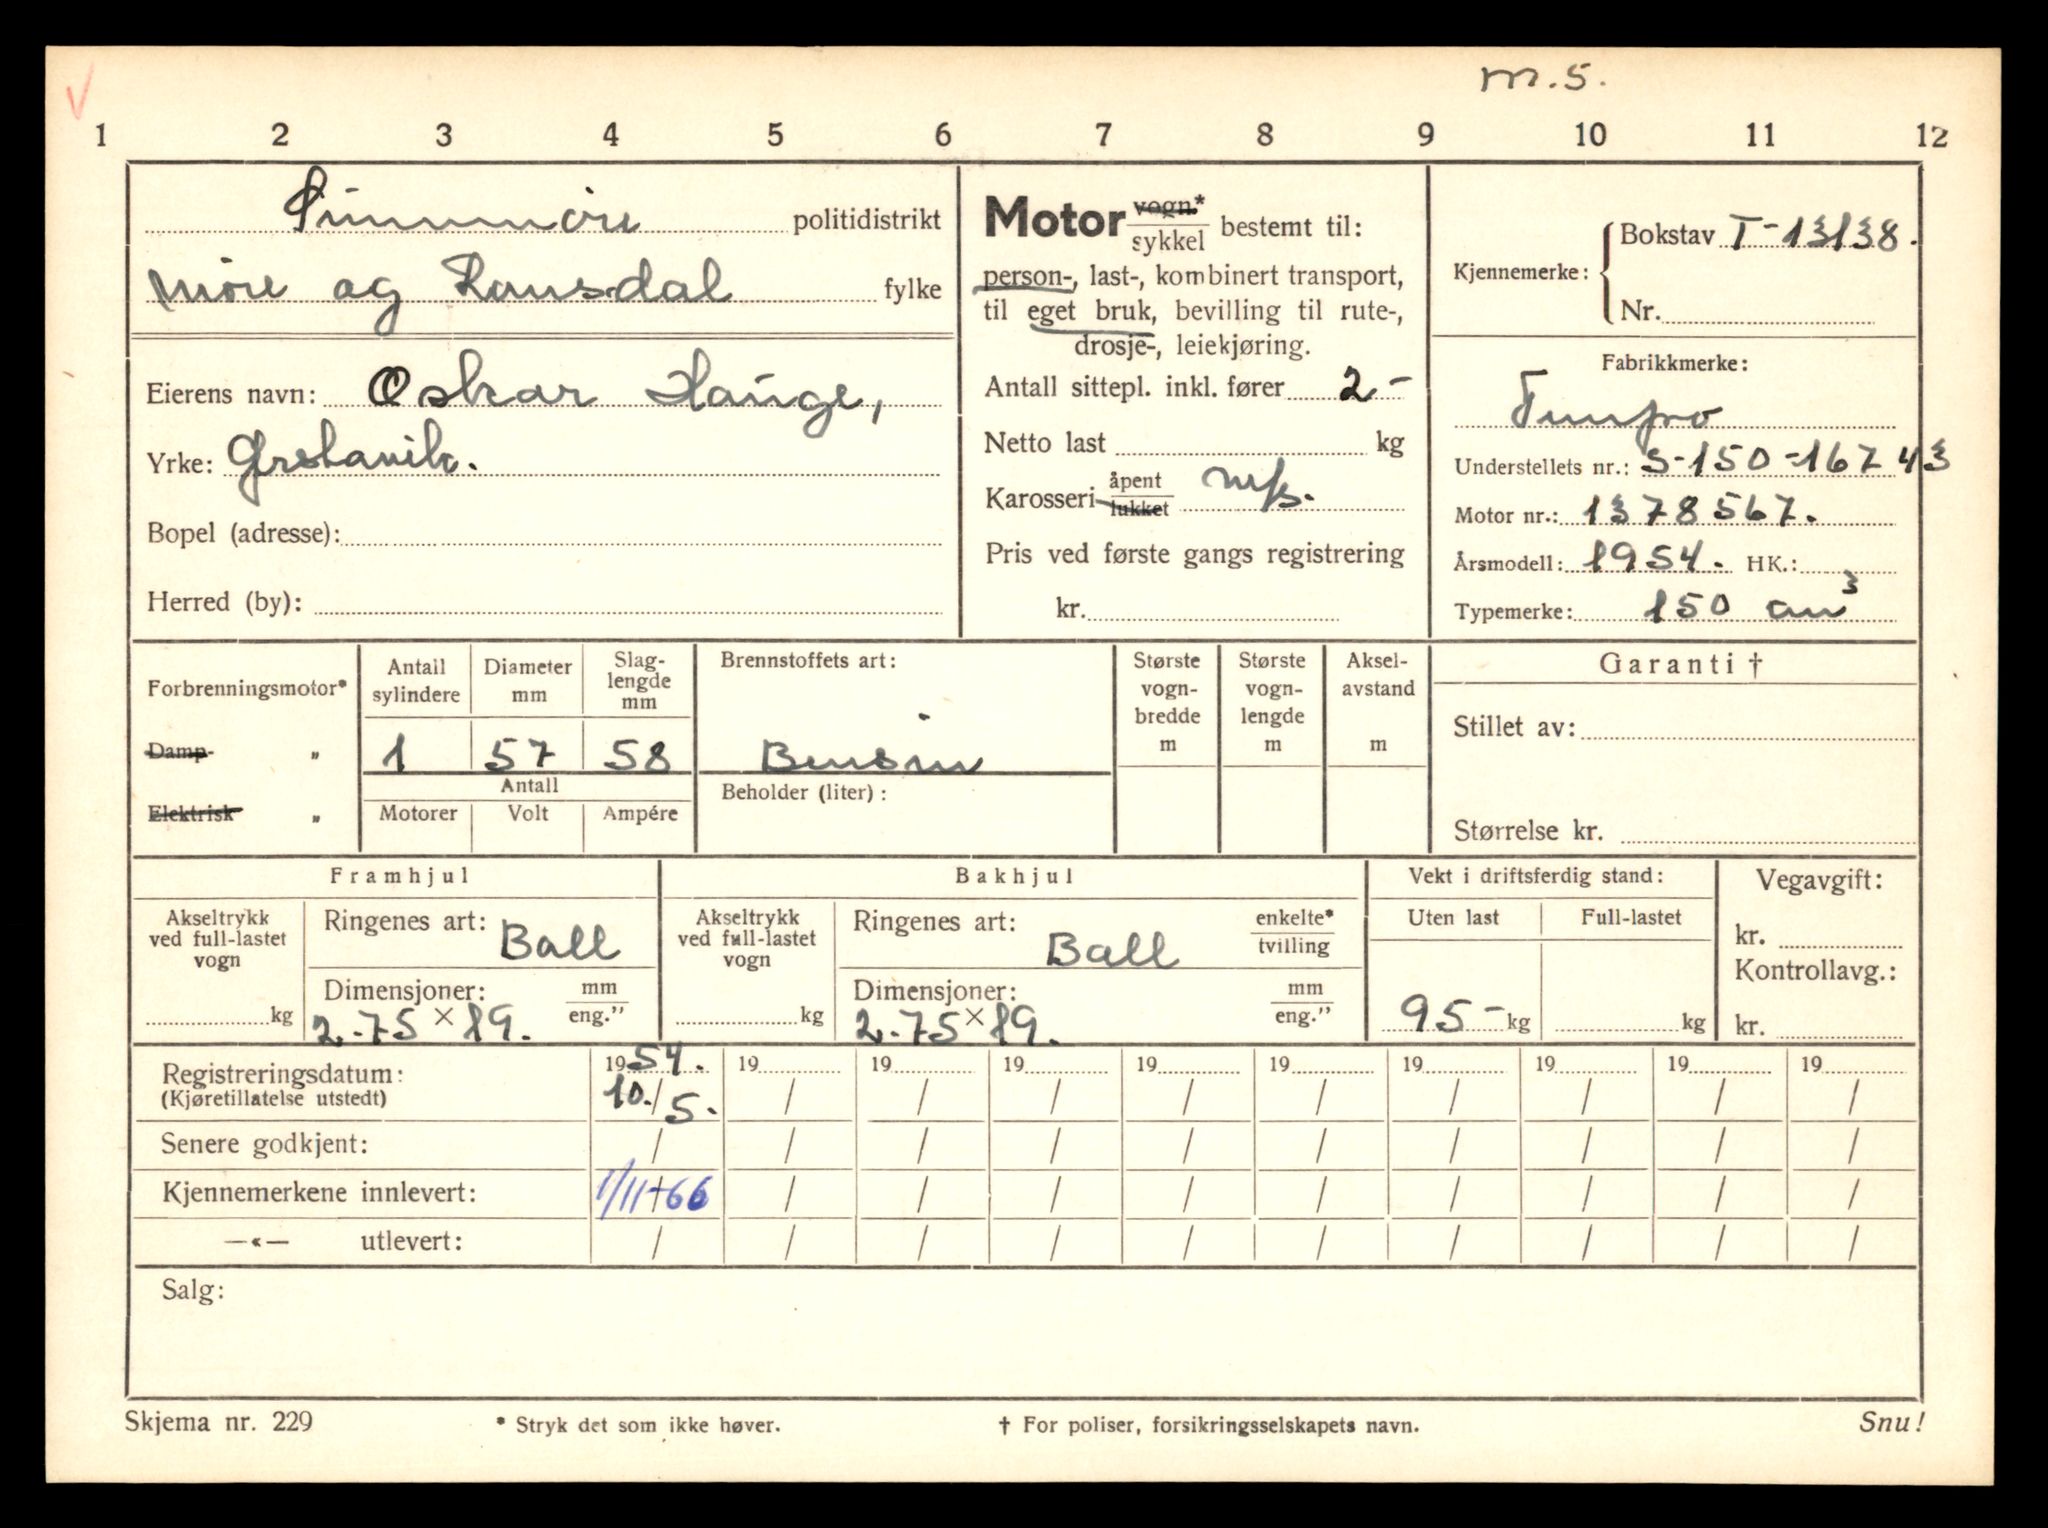 m.s.
1 2 3 4 5 6 7 8 9 10 11 12
Sunnmøre politidistrikt
Møre og Romsdal fylke
Eierens navn: Oskar Hauge,
Yrke: Ørstavik.
Bopel (adresse):
Herred (by):
Motor vogn.*
sykkel bestemt til:
person-, last-, kombinert transport,
til eget bruk, bevilling til rute-,
drosje-, leiekjøring.
Antall sittepl. inkl. fører 2-
Netto last kg
Karosseri åpent
lukket
Pris ved første gangs registrering
kr.
Kjennemerke: Bokstav T-13138.
Nr.
Fabrikkmerke:
Tempo
Understellets nr.: S-150-16743
Motor nr.: 1378567.
Årsmodell: 1954. HK.:
Typemerke: 150 cm³
Forbrenningsmotor*
Damp- "
Elektrisk "
Antall sylindere
1
Diameter mm
57
Slag-
lengde
mm
58
Antall
Motorer Volt Ampére
Brennstoffets art:
Bensin
Beholder (liter):
Største
vogn-
bredde
m
Største
vogn-
lengde
m
Aksel-
avstand
m
Garanti †
Stillet av:
Størrelse kr.
Framhjul
Akseltrykk
ved full-lastet
vogn
kg
Ringenes art: Ball
Dimensjoner: mm
eng."
2.75 × 19.
Bakhjul
Akseltrykk
ved full-lastet
vogn
kg
Ringenes art: Ball enkelte*
tvilling
Dimensjoner: mm
eng."
2.75 × 19.
Vekt i driftsferdig stand:
Uten last Full-lastet
95- kg kg
Vegavgift:
kr.
Kontrollavg.:
kr.
Registreringsdatum:
(Kjøretillatelse utstedt)
1954. 19 19 19 19 19 19 19 19 19
10./5. / / / / / / / / /
Senere godkjent: / / / / / / / / / /
Kjennemerkene innlevert: 1/11-66 / / / / / / / / /
—«— utlevert: / / / / / / / / / /
Salg:
Skjema nr. 229 * Stryk det som ikke høver. † For poliser, forsikringsselskapets navn. Snu!